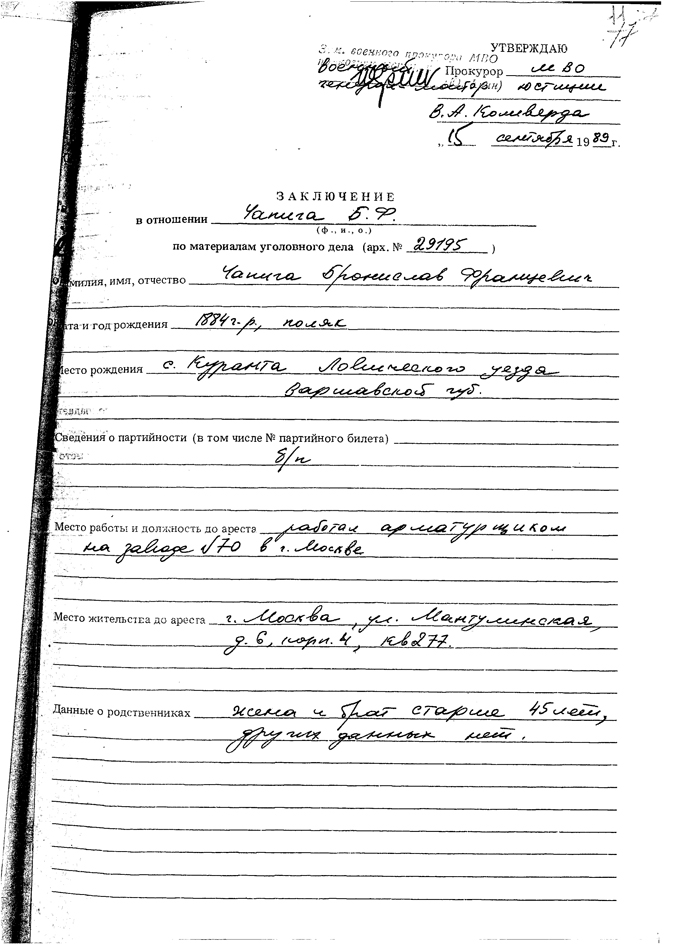 11
77
УТВЕРЖДАЮ
З. м. военного прокурора МВО
Прокурор МВО
юстиции
В.А. Коливерда
„15 сентября 1989 г.
ЗАКЛЮЧЕНИЕ
в отношении Чапига Б.Ф.
(ф., и., о.)
по материалам уголовного дела (арх. № 29195 )
амилия, имя, отчество Чапига Бронислав Францевич
ата и год рождения 1884 г.р., поляк
есто рождения с. Куранта Ловического уезда
Варшавской губ.
Сведения о партийности (в том числе № партийного билета)
б/п
Место работы и должность до ареста работал арматурщиком
на заводе №70 в г. Москве
Место жительства до ареста г. Москва, ул. Мантулинская,
д. 6, корп. 4, кв 277.
Данные о родственниках жена и брат старше 45 лет,
других данных нет.